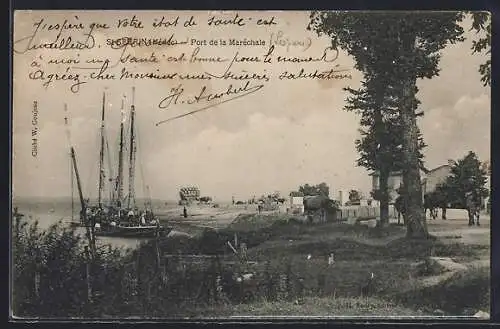 J'espère que votre état de santé est
meilleur, S-SEURIN (Médoc) — Port de la Maréchale (Lesparre)
à moi ma santé est bonne pour le moment
Agréez, cher Monsieur mes sincères salutations
H. Aubert
Cliché W. Goujeac